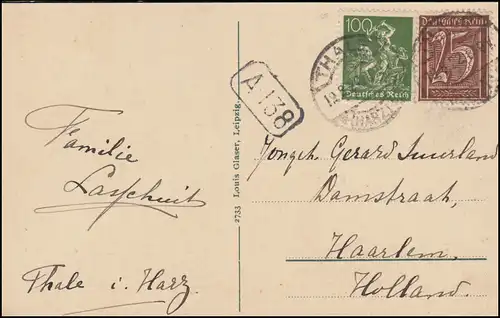 100
Deutsches Reich
Deutsches Reich
25
THALE
(HARZ)
A 138
2733 Louis Glaser, Leipzig.
Familie
Thale i. Harz
Jongh. Gerard
Damstraat,
Haarlem.
Holland.